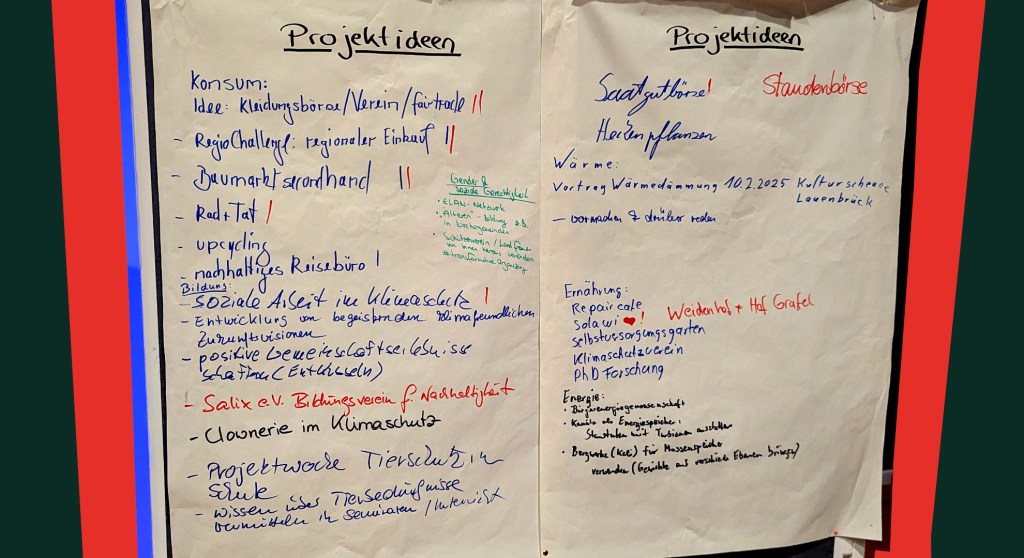 Projektideen
Konsum:
Idee: Kleidungsbörse/Verein/fairtrade ||
- RegioChallenge: regionaler Einkauf ||
- Baumarktsecondhand ||
- Rad+Tat |
- upcycling
- nachhaltiges Reisebüro |
Bildung:
- soziale Arbeit im Klimaschutz |
- Entwicklung von begeisternden klimafreundlichen
Zukunftsvisionen
- positive Gemeinschaftserlebnisse
schaffen (Entkusseln)
- Salix e.V. Bildungsverein f. Nachhaltigkeit
- Clownerie im Klimaschutz
- Projektwoche Tierschutz in
Schule
- Wissen über Tierbedürfnisse
vermitteln in Seminaren / Unterricht
Gender &
soziale Gerechtigkeit
• ELAN-Netzwerk
• bildung z.B.
in Kirchengemeinden
• Schützenverein / Landfrauen
von innen heraus
Projektideen
Saatgutbörse! Staudenbörse
Heilenpflanzen
Wärme:
Vortrag Wärmedämmung 10.2.2025 Kulturscheune
Lauenbrück
- vormachen & drüber reden
Ernährung:
Repaircafe
Solawi ❤! Weidenhof + Hof Grafel
Selbstversorgungsgarten
Klimaschutzverein
PhD Forschung
Energie:
• Bürgerenergiegenossenschaft
• Kanäle als Energiespeicher,
Staustufen mit Turbinen ausstatten
• Bergwerke (Kali) für Massenspeicher
verwenden (Gewichte auf verschiedene Ebenen bringen)